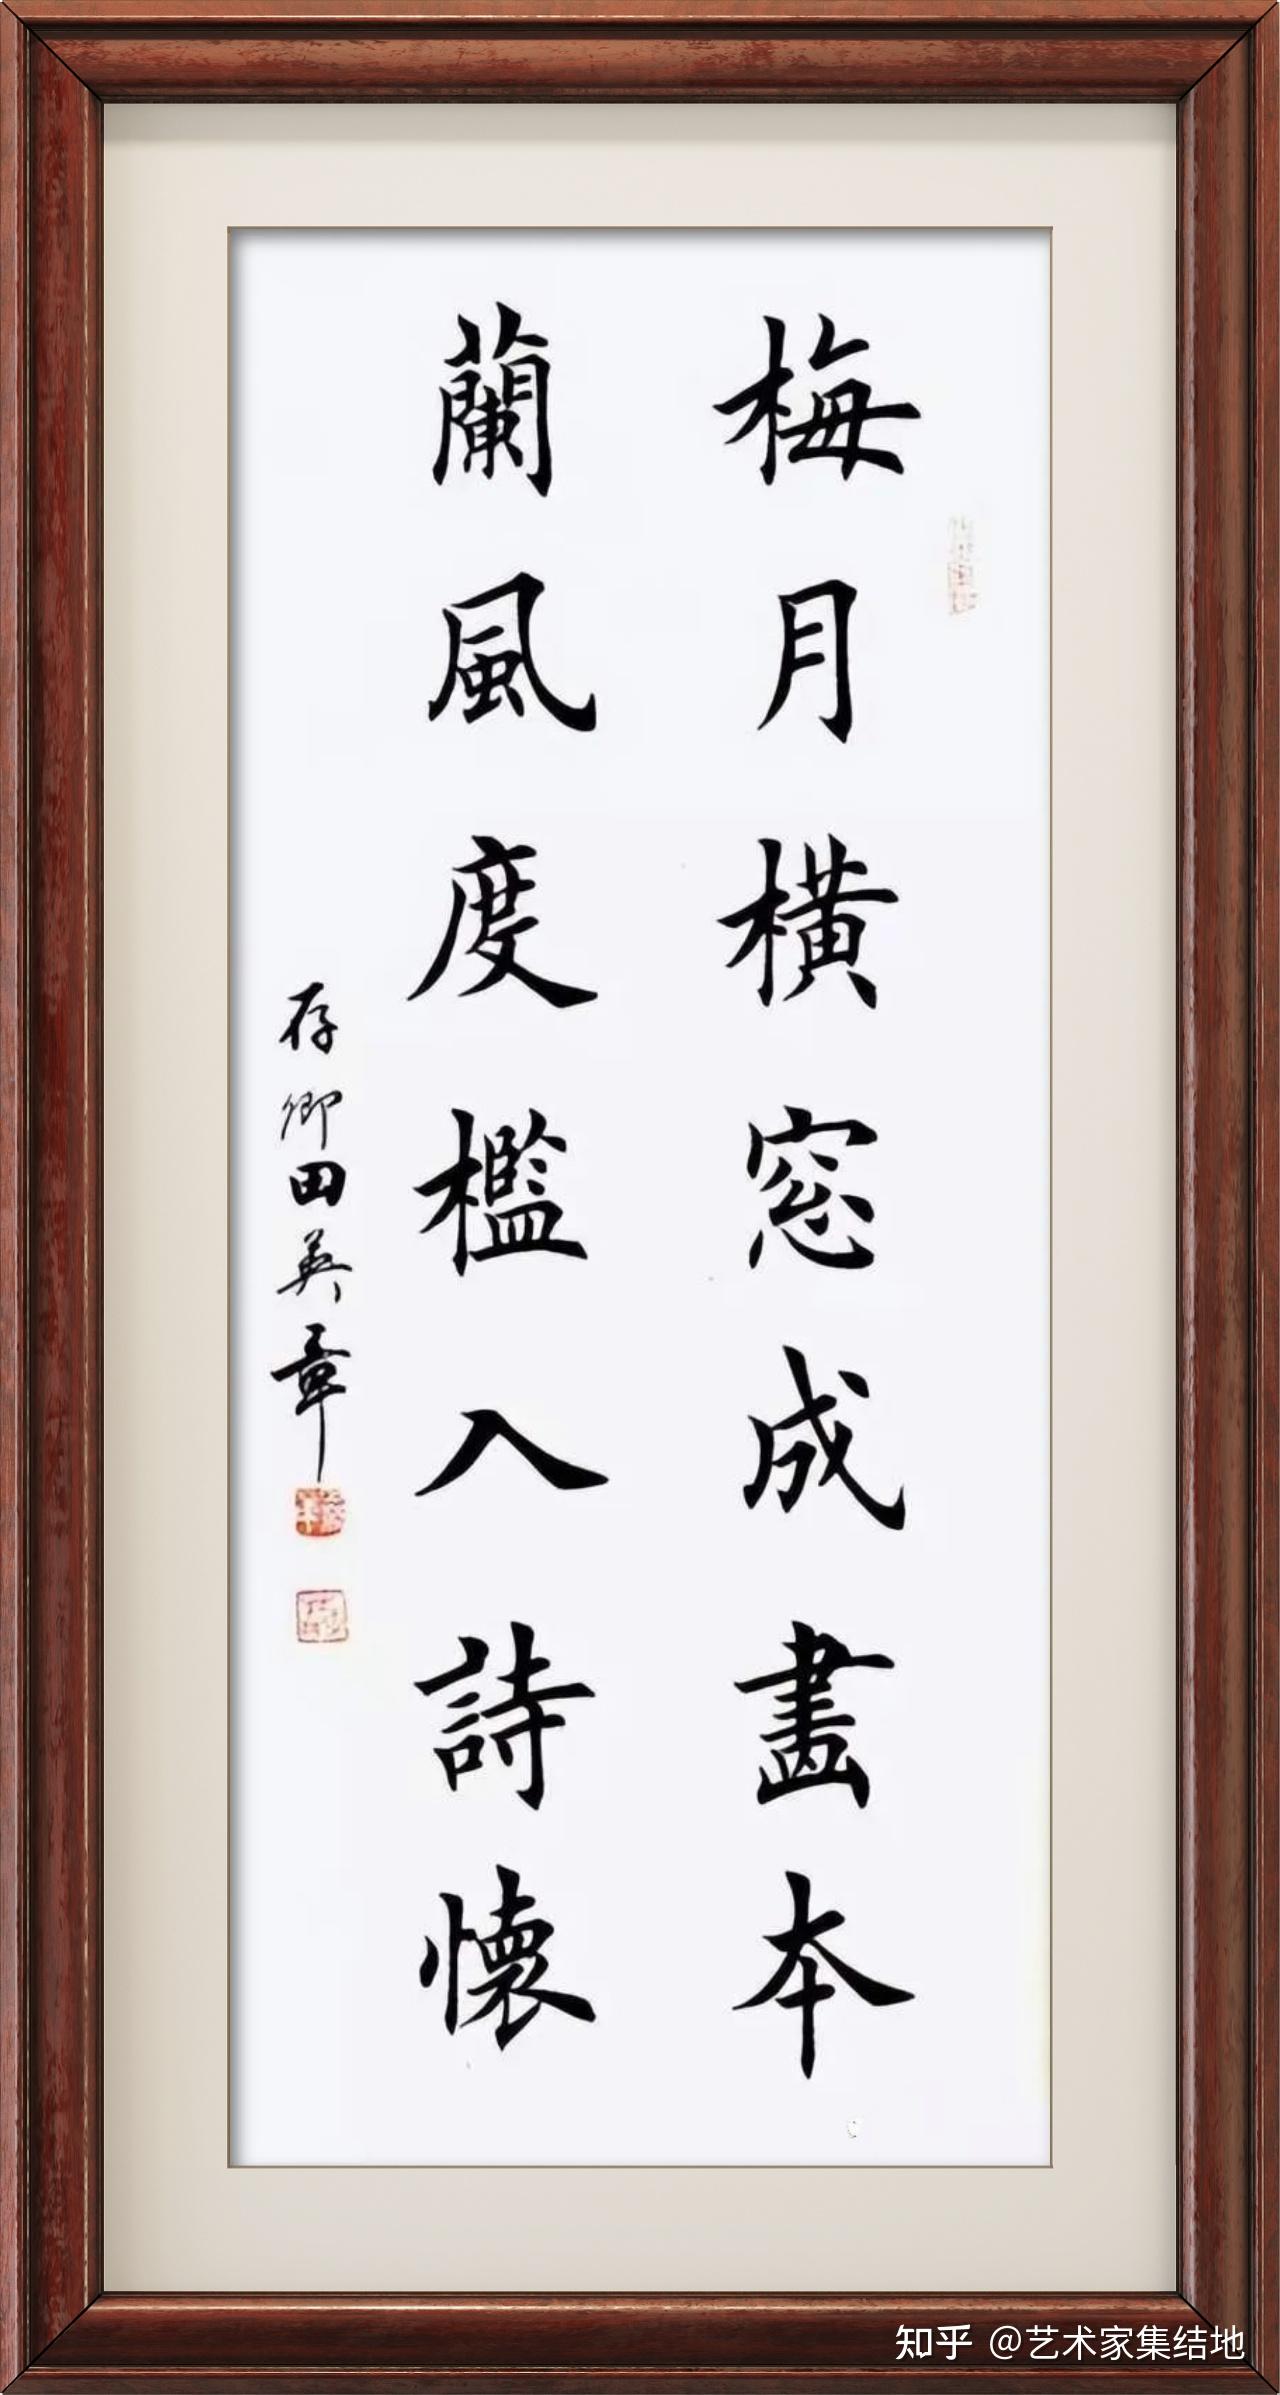 梅月橫窓成畫本
蘭風度檻入詩懷
存卿田英章
知乎 @艺术家集结地